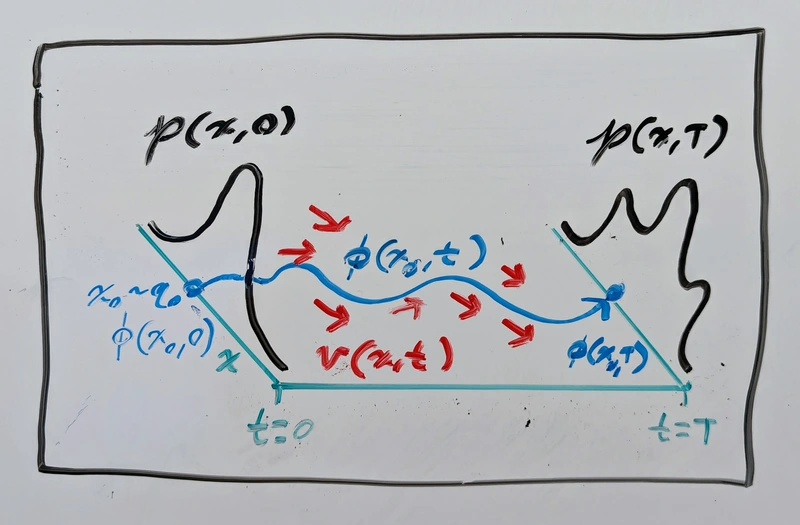 p(x,0)
p(x,T)
ϕ(x₀,t)
x₀~q₀
ϕ(x₀,0)
x
v(x,t)
ϕ(x₀,T)
t=0
t=T